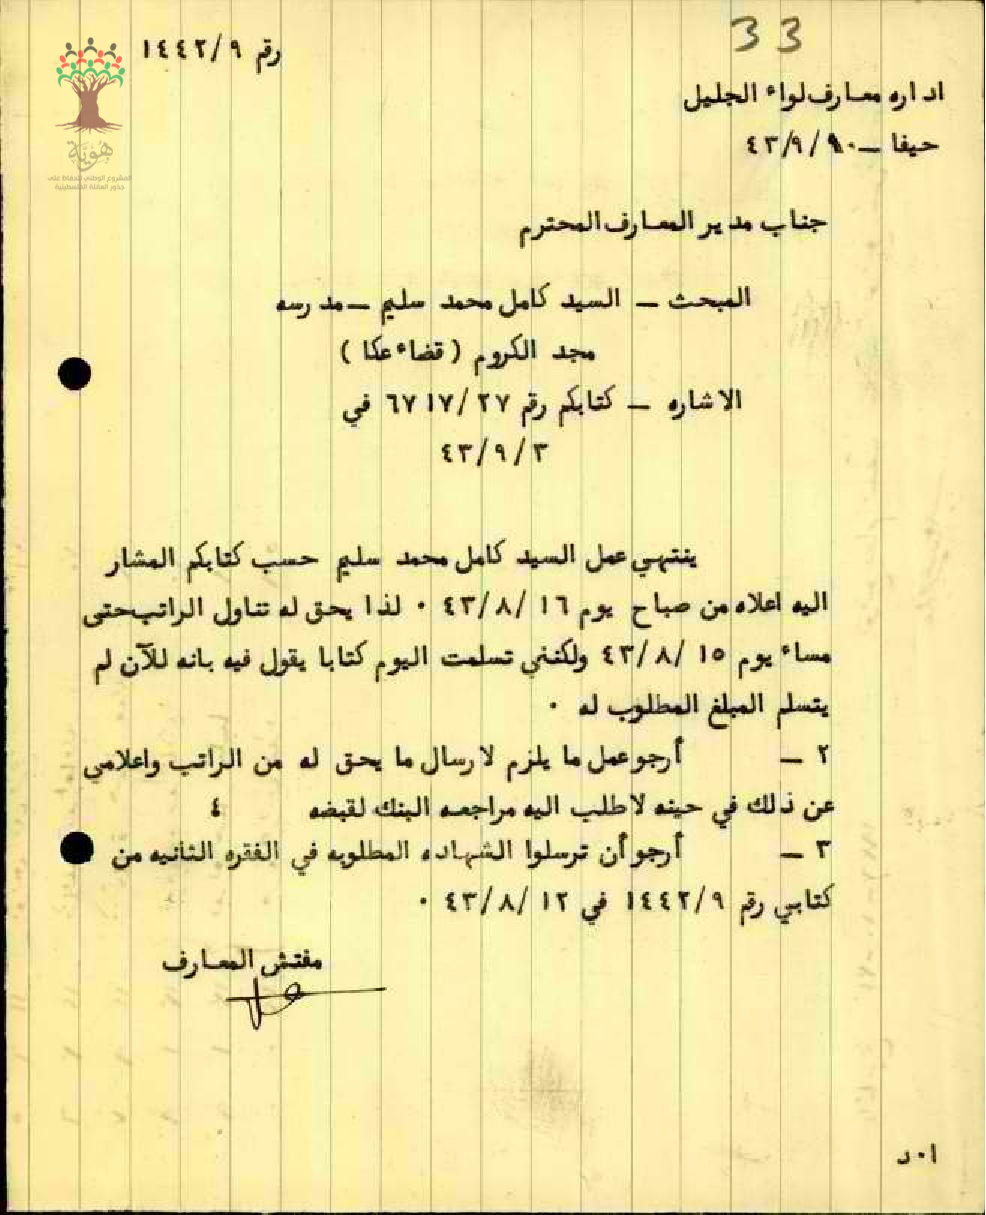 33
رقم ١٤٤٢/٩
اداره معارف لواء الجليل
حيفا – ٤٣/٩/١٠
هوية
المشروع الوطني للحفاظ على
جذور العائلة الفلسطينية
جناب مدير المعارف المحترم
المبحث – السيد كامل محمد سليم – مدرسه
مجد الكروم ( قضاء عكا )
الاشاره – كتابكم رقم ٦٧١٧/٢٧ في
٤٣/٩/٣
ينتهي عمل السيد كامل محمد سليم حسب كتابكم المشار
اليه اعلاه من صباح يوم ٤٣/٨/١٦ ٠ لذا يحق له تناول الراتب حتى
مساء يوم ٤٣/٨/١٥ ولكنني تسلمت اليوم كتابا يقول فيه بانه للآن لم
يتسلم المبلغ المطلوب له ٠
٢ – أرجو عمل ما يلزم لارسال ما يحق له من الراتب واعلامي
عن ذلك في حينه لاطلب اليه مراجعه البنك لقبضه ٤
٣ – أرجو أن ترسلوا الشهاده المطلوبه في الفقره الثانيه من
كتابي رقم ١٤٤٢/٩ في ٤٣/٨/١٢ ٠
مفتش المعارف
ا٠د